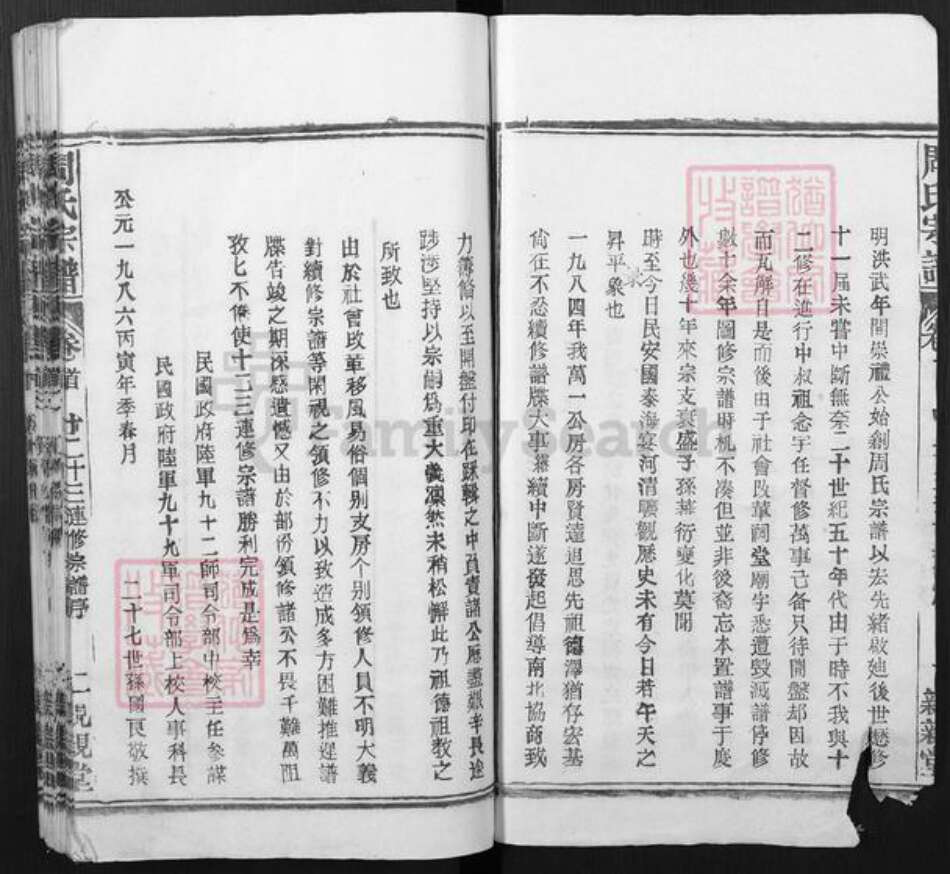 周氏宗譜
明洪武年間崇禮公始創周氏宗譜以宏先緒啟廸後世歷修
十一屆未嘗中斷無奈二十世紀五十年代由于時不我與十
二修在進行中叔祖念宇任督修萬事己备只待開盤却因故
而瓦解自是而後由于社會改革祠堂廟宇悉遭毁滅譜停修
數十余年圖修宗譜時机不凑但並非後裔忘本置譜事于度
外也幾十年來宗支衰盛子孫蕃衍变化莫聞
時至今日民安國泰海宴河清縱觀歷史未有今日若午天之
昇平象也
一九八四年我萬一公房各房賢達追思先祖德澤猶存宏基
尚在不忍續修譜牒大事繼續中斷遂發起倡導南北協商致
力籌偹以至開盤付印在跃輯之中負責諸公歷盡艱辛長途
跋涉堅持以宗嗣爲重大義凛然未稍松懈此乃祖德祖教之
所致也
由於社會改革移風易俗個别支房个别領修人員不明大義
對續修宗譜等閑視之領修不力以致造成多方困難推遲譜
牒告竣之期深感遺憾又由於部份領修諸公不畏千難萬阻
孜匕不倦使十二三連修宗譜勝利完成是爲幸
民國政府陸軍九十二師司令部中校主任參謀
民國政府陸軍九十九軍司令部上校人事科長
二十七世孫國良敬撰
公元一九八六丙寅年季春月
周氏宗譜 卷首 十二十三連修宗譜序 二 親親堂
FamilySearch